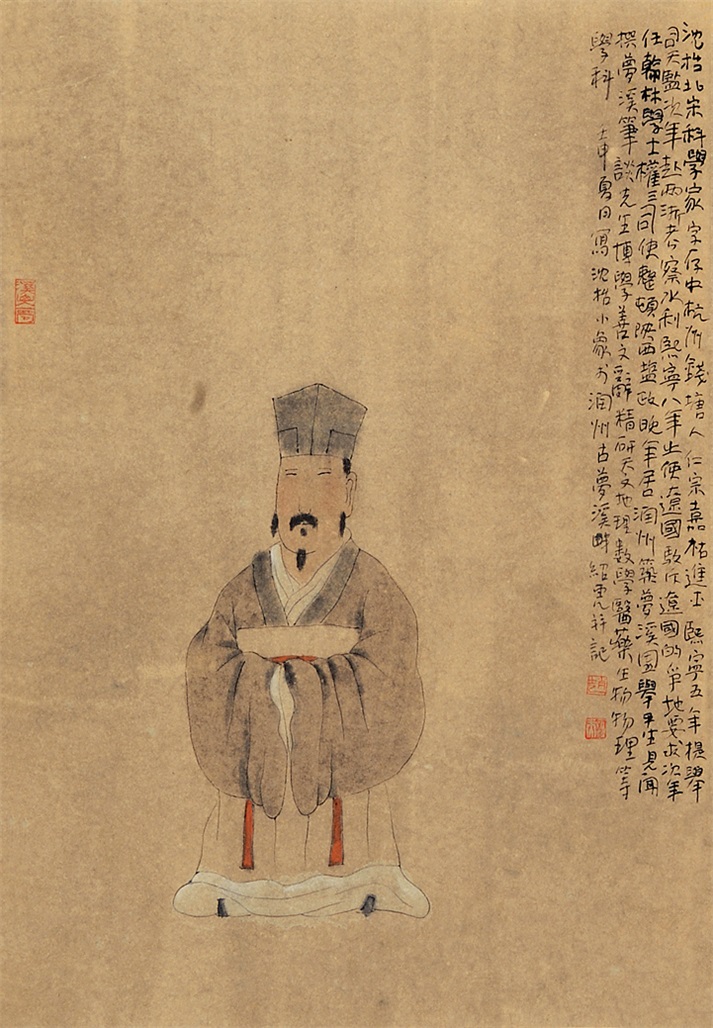 沈括北宋科學家字存中杭州錢塘人仁宗嘉祐進士熙寧五年提舉
司天監次年赴两浙考察水利熙寧八年出使遼國駁斥遼國的爭地要求次年
任翰林學士權三司使整頓陝西盐政晚年居润州築夢溪園舉平生見聞
撰夢溪筆談先生博學善文辭精研天文地理數學醫藥生物物理等
學科 壬申夏日寫沈括小象于润州古夢溪畔 紹 并記